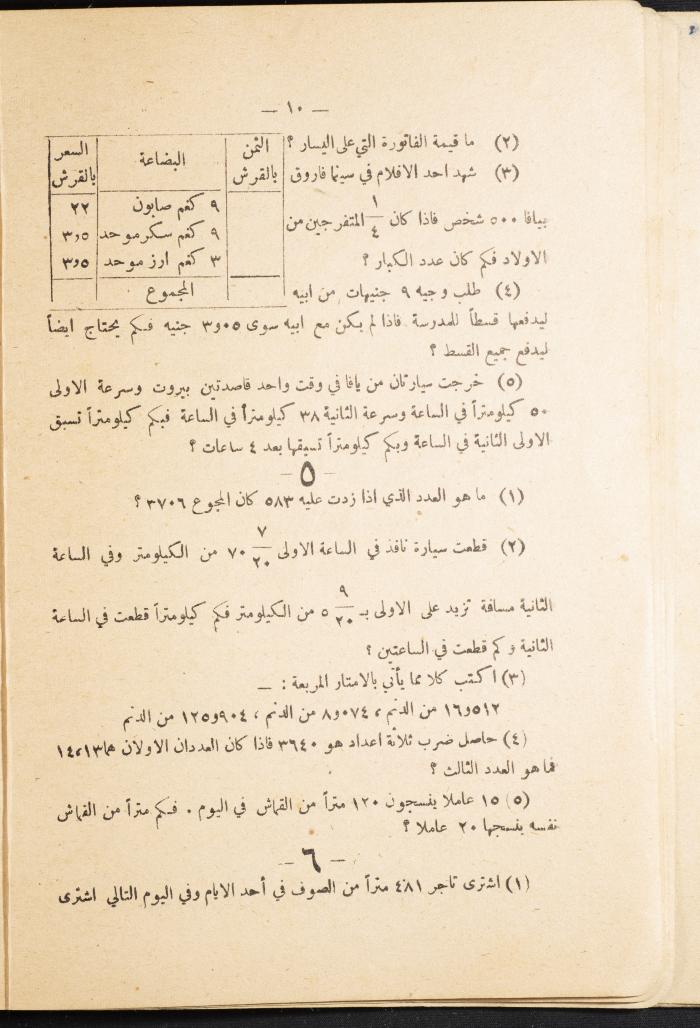 — ١٠ —
(٢) ما قيمة الفاتورة التي على اليسار ؟
(٣) شهد احد الافلام في سينما فاروق
بيافا ٥٠٠ شخص فاذا كان ١/٤ المتفرجين من
الاولاد فكم كان عدد الكبار ؟
(٤) طلب وجيه ٩ جنيهات من ابيه
الثمن بالقرش | البضاعة | السعر بالقرش
٩ كغم صابون | ٢٢
٩ كغم سكر موحد | ٣٫٥
٣ كغم ارز موحد | ٣٫٥
المجموع
ليدفعها قسطاً للمدرسة فاذا لم يكن مع ابيه سوى ٣٫٠٥ جنيه فكم يحتاج ايضاً
ليدفع جميع القسط ؟
(٥) خرجت سيارتان من يافا في وقت واحد قاصدتين بيروت وسرعة الاولى
٥٠ كيلومتراً في الساعة وسرعة الثانية ٣٨ كيلومتراً في الساعة فبكم كيلومتراً تسبق
الاولى الثانية في الساعة وبكم كيلومتراً تسبقها بعد ٤ ساعات ؟
— ٥ —
(١) ما هو العدد الذي اذا زدت عليه ٥٨٣ كان المجموع ٣٧٠٦ ؟
(٢) قطعت سيارة نافذ في الساعة الاولى ٧/٢٠ ٧٠ من الكيلومتر وفي الساعة
الثانية مسافة تزيد على الاولى بـ ٩/٢٠ ٥ من الكيلومتر فكم كيلومتراً قطعت في الساعة
الثانية وكم قطعت في الساعتين ؟
(٣) اكتب كلا مما يأتي بالامتار المربعة : —
١٦٫٥١٢ من الدنم ، ٨٫٠٧٤ من الدنم ، ١٢٥٫٩٠٤ من الدنم
(٤) حاصل ضرب ثلاثة اعداد هو ٣٦٤٠ فاذا كان العددان الاولان هما ١٣،١٤
فما هو العدد الثالث ؟
(٥) ١٥ عاملا ينسجون ١٢٠ متراً من القماش في اليوم . فكم متراً من القماش
نفسه ينسجها ٢٠ عاملا ؟
— ٦ —
(١) اشترى تاجر ٤٨١ متراً من الصوف في أحد الايام وفي اليوم التالي اشترى